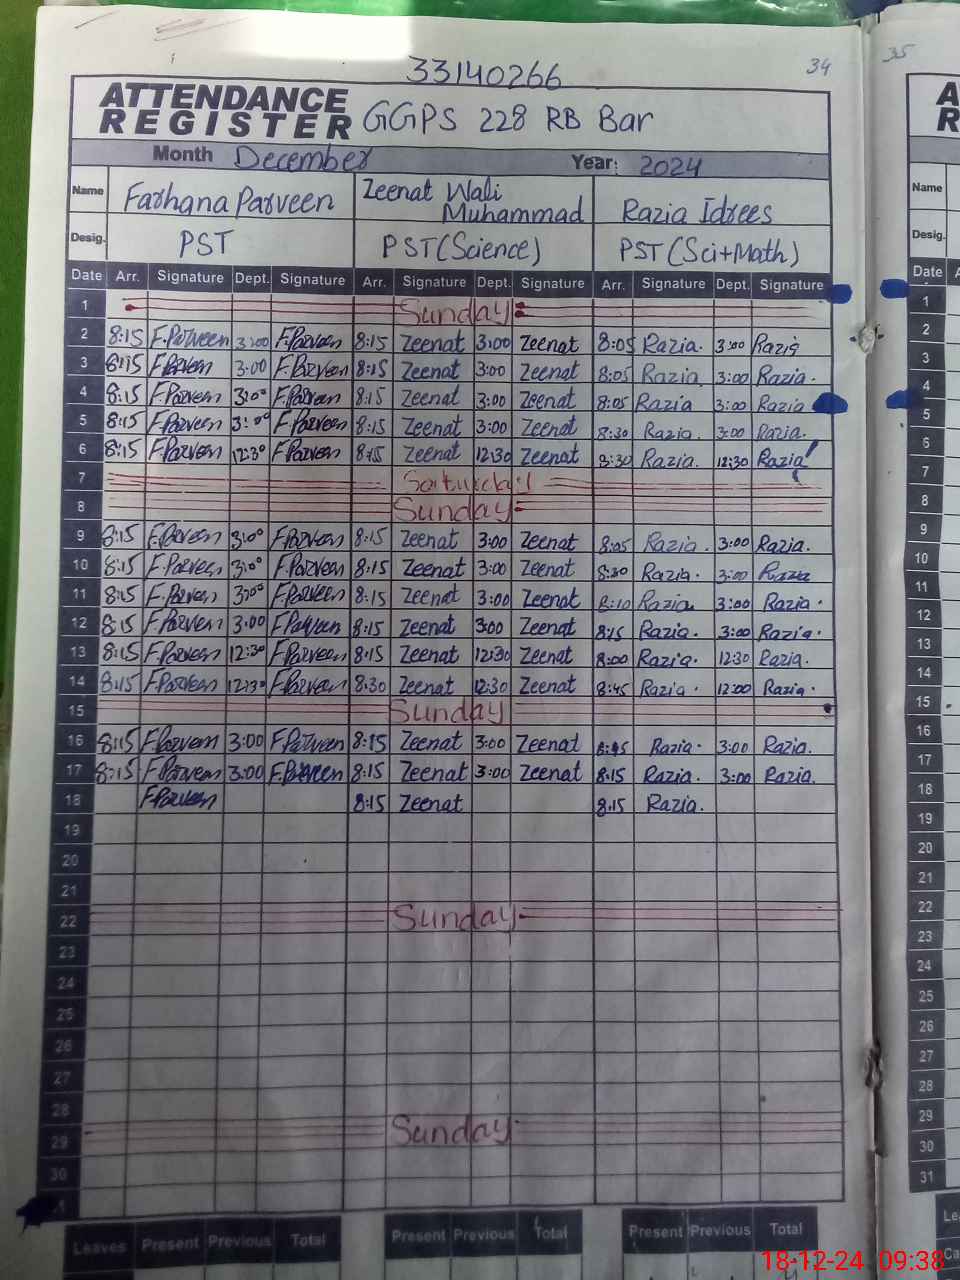 34 35
33140266
ATTENDANCE
REGISTER GGPS 228 RB Bar
Month December Year: 2024
Name Farhana Parveen Zeenat Wali Muhammad Razia Idrees
Name
Desig. PST PST(Science) PST(Sci+Math)
Desig.
Date Arr. Signature Dept. Signature Arr. Signature Dept. Signature Arr. Signature Dept. Signature Date
1 Sunday 1
2 8:15 F.Parveen 3:00 F.Parveen 8:15 Zeenat 3:00 Zeenat 8:05 Razia. 3:00 Razia 2
3 8:15 F.Parveen 3:00 F.Parveen 8:15 Zeenat 3:00 Zeenat 8:05 Razia 3:00 Razia. 3
4 8:15 F.Parveen 3:00 F.Parveen 8:15 Zeenat 3:00 Zeenat 8:05 Razia 3:00 Razia 4
5 8:15 F.Parveen 3:00 F.Parveen 8:15 Zeenat 3:00 Zeenat 8:30 Razia. 3:00 Razia. 5
6 8:15 F.Parveen 12:30 F.Parveen 8:15 Zeenat 12:30 Zeenat 8:30 Razia. 12:30 Razia 6
7 Saturday 7
8 Sunday 8
9 8:15 F.Parveen 3:00 F.Parveen 8:15 Zeenat 3:00 Zeenat 8:05 Razia. 3:00 Razia. 9
10 8:15 F.Parveen 3:00 F.Parveen 8:15 Zeenat 3:00 Zeenat 8:30 Razia. 3:00 Razia 10
11 8:15 F.Parveen 3:00 F.Parveen 8:15 Zeenat 3:00 Zeenat 8:10 Razia 3:00 Razia. 11
12 8:15 F.Parveen 3:00 F.Parveen 8:15 Zeenat 3:00 Zeenat 8:15 Razia. 3:00 Razia. 12
13 8:15 F.Parveen 12:30 F.Parveen 8:15 Zeenat 12:30 Zeenat 8:00 Razia. 12:30 Razia. 13
14 8:15 F.Parveen 12:30 F.Parveen 8:30 Zeenat 12:30 Zeenat 8:45 Razia. 12:00 Razia. 14
15 Sunday 15
16 8:15 F.Parveen 3:00 F.Parveen 8:15 Zeenat 3:00 Zeenat Razia. 3:00 Razia. 16
17 8:15 F.Parveen 3:00 F.Parveen 8:15 Zeenat 3:00 Zeenat 8:15 Razia. 3:00 Razia. 17
18 F.Parveen 8:15 Zeenat 8:15 Razia. 18
19 19
20 20
21 21
22 Sunday 22
23 23
24 24
25 25
26 26
27 27
28 28
29 Sunday 29
30 30
31
Leaves Present Previous Total Present Previous Total Present Previous Total
18-12-24 09:38